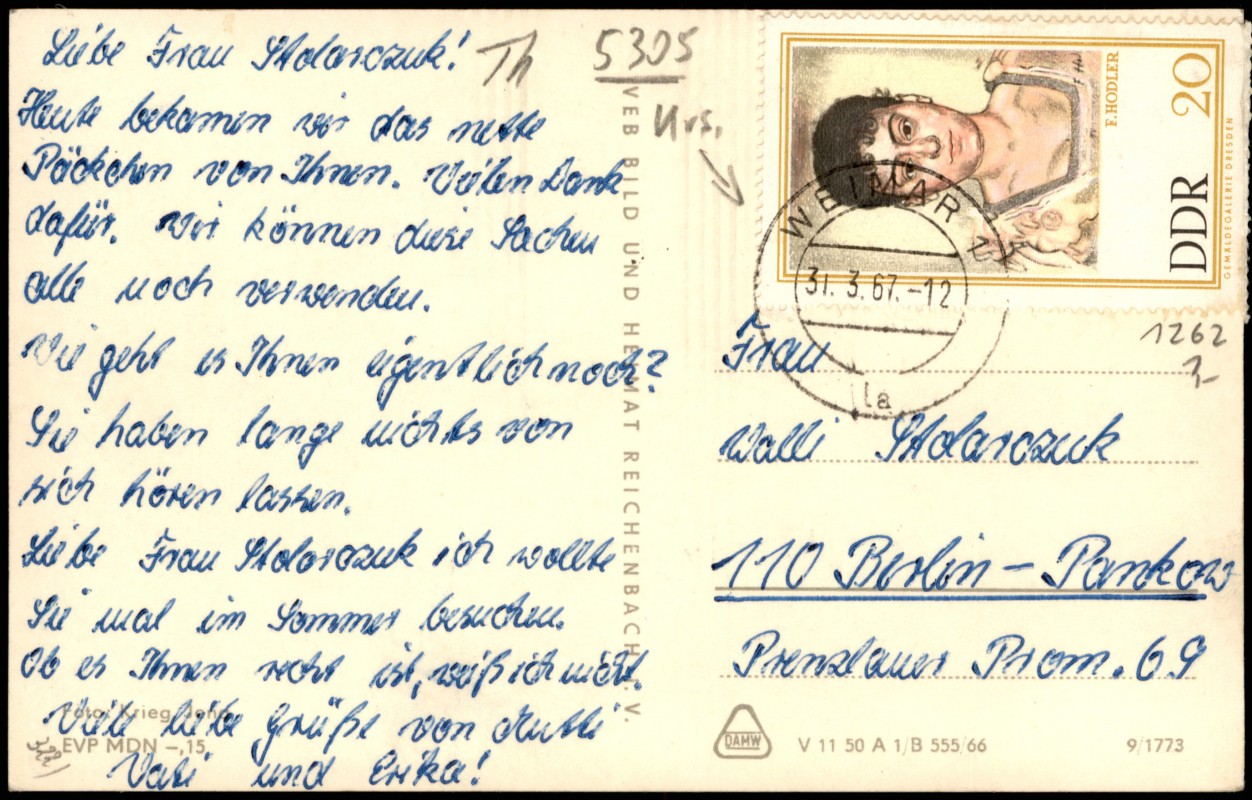 Liebe Frau Stolarczuk!
Heute bekamen wir das nette
Päckchen von Ihnen. Vielen Dank
dafür. Wir können diese Sachen
alle noch verwenden.
Wie geht es Ihnen eigentlich noch?
Sie haben lange nichts von
sich hören lassen.
Liebe Frau Stolarczuk ich wollte
Sie mal im Sommer besuchen.
Ob es Ihnen recht ist, weiß ich nicht.
Viele liebe Grüße von Mutti
Vati und Erika!
Foto: Krieg, Jena
EVP MDN –,15
Th
5305
VEB BILD UND HEIMAT REICHENBACH I. V.
F. HODLER
20
DDR
GEMÄLDEGALERIE DRESDEN
WEIMAR 1
31.3.67.-12
la
1262
Frau
Walli Stolarczuk
110 Berlin – Pankow
Prenzlauer Prom. 69
DAMW
V 11 50 A 1/B 555/66
9/1773